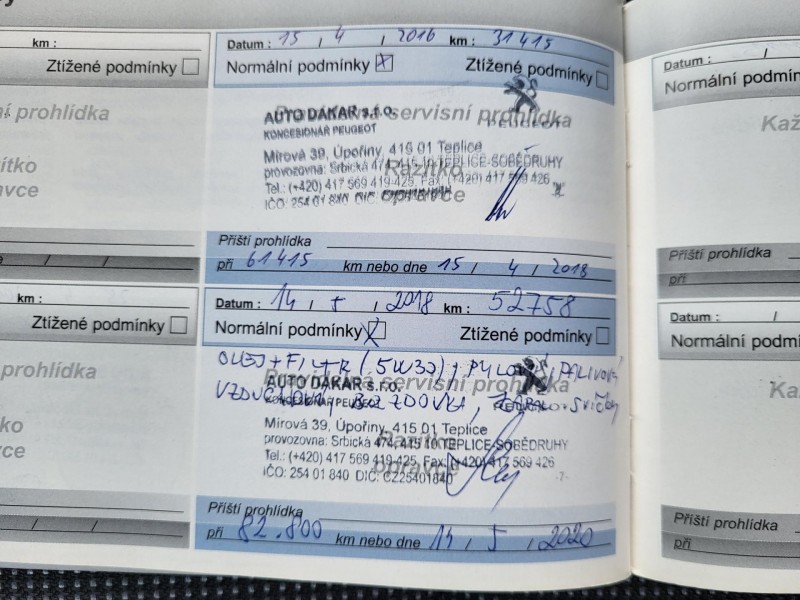 km :
Ztížené podmínky
ní prohlídka
ítko
vce
km :
Ztížené podmínky
hlídka
o
e
Datum : 15 / 4 / 2016 km : 31415
Normální podmínky Ztížené podmínky
Pravidelná servisní prohlídka
AUTO DAKAR s.r.o.
PEUGEOT
KONCESIONÁŘ PEUGEOT
Mírová 39, Úpořiny, 415 01 Teplice
Razítko
provozovna: Srbická 474, 415 10 TEPLICE-SOBĚDRUHY
Tel.: (+420) 417 569 419-425, Fax: (+420) 417 569 426
opravce
IČO: 254 01 840 DIČ:
Příští prohlídka
při 61415 km nebo dne 15 / 4 / 2018
Datum : 14 / 5 / 2018 km : 52758
Normální podmínky Ztížené podmínky
OLEJ + FILTR (5W30), PYLOVÝ, PALIVOVÝ
Pravidelná servisní prohlídka
AUTO DAKAR s.r.o.
KONCESIONÁŘ PEUGEOT
Mírová 39, Úpořiny, 415 01 Teplice
Razítko
provozovna: Srbická 474, 415 10 TEPLICE-SOBĚDRUHY
Tel.: (+420) 417 569 419-425, Fax: (+420) 417 569 426
opravce
IČO: 254 01 840 DIČ: CZ25401840 -7-
Příští prohlídka
při 82.800 km nebo dne 14 / 5 / 2020
Datum : /
Normální podmín
Kaž
Příští prohlídka
při
Datum : /
Normální podmín
Ka
Příští prohlídka
při